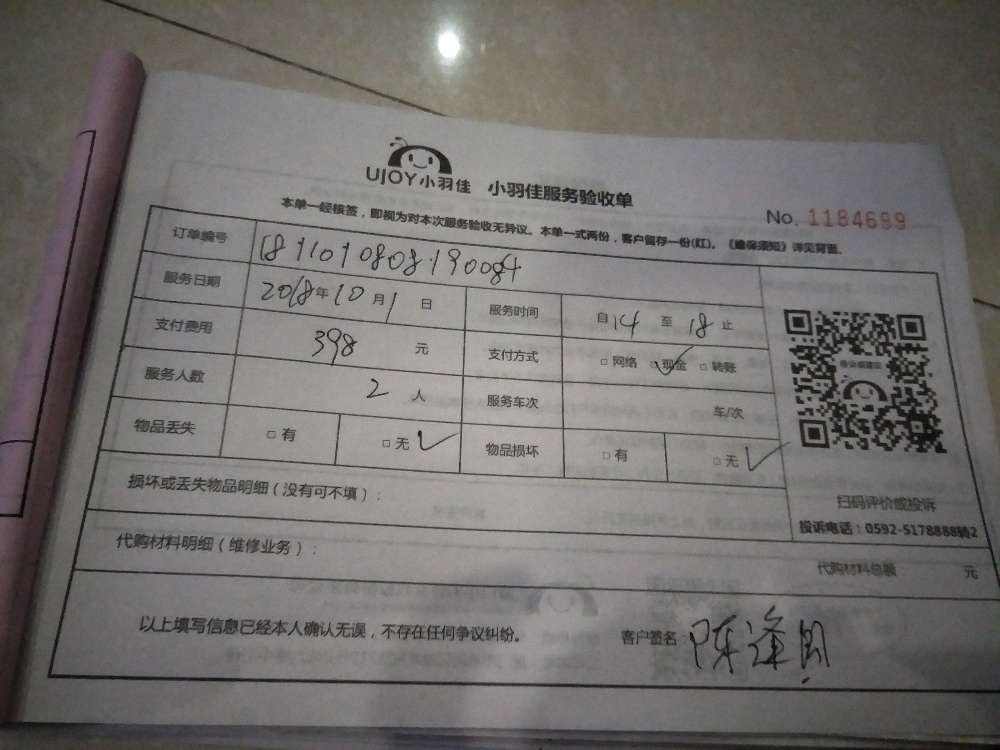 UJOY小羽佳 小羽佳服务验收单
No. 1184699
本单一经核签，即视为对本次服务验收无异议。本单一式两份，客户留存一份(红)。《维保须知》详见背面。
订单编号
服务日期 2018年10月1日 服务时间 自14至18止
支付费用 398元 支付方式 □网络 □现金✓ □转账
服务人数 2人 服务车次 车/次
物品丢失 □有 □无✓ 物品损坏 □有 □无✓
扫码评价或投诉
投诉电话：0592-5178888转2
损坏或丢失物品明细（没有可不填）：
代购材料明细（维修业务）： 代购材料总额 元
以上填写信息已经本人确认无误，不存在任何争议纠纷。 客户签名：陈逢